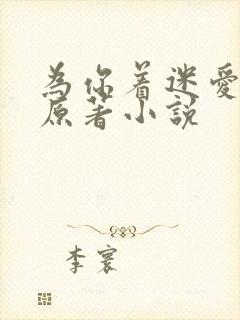 為你着迷愛
原著小説
李寰